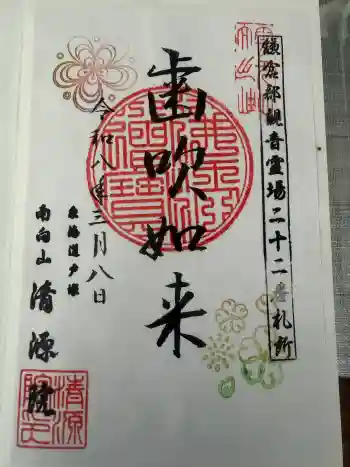 鎌倉郡観音霊場二十二番札所
歯吹如来
令和八年三月八日
東海道戸塚
南向山 清源院
清源院印